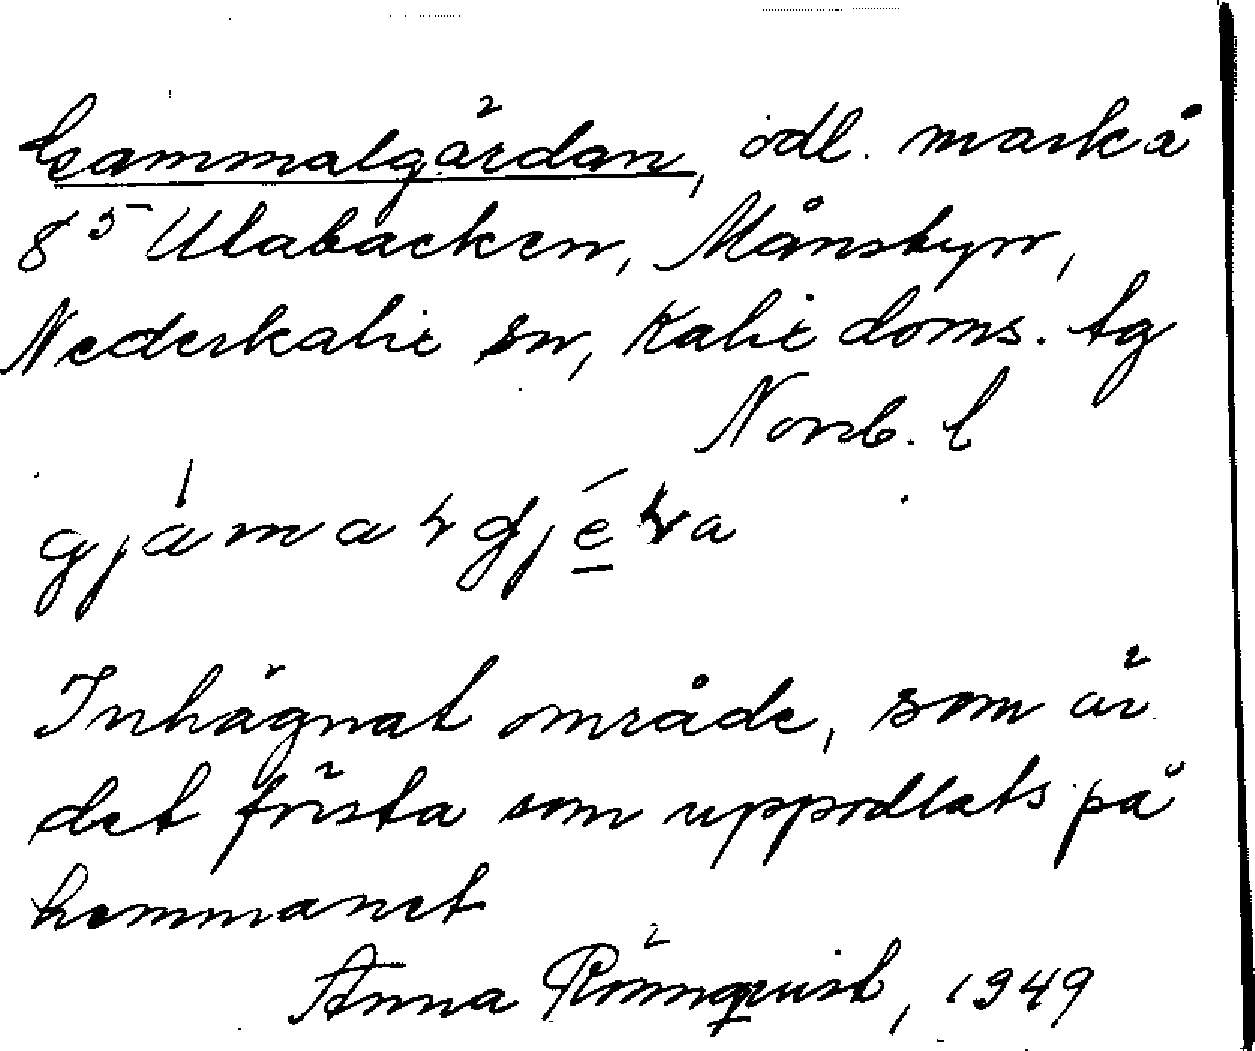 Gammalgärdan, odl. mark å
8⁵ Ulabacken, Månsbyn,
Nederkalix sn, Kalix doms. tg
Norrb. l
gjámaɽgjéɽa
Inhägnat område, som är
det första som uppodlats på
hemmanet
Anna Rönnquist, 1949